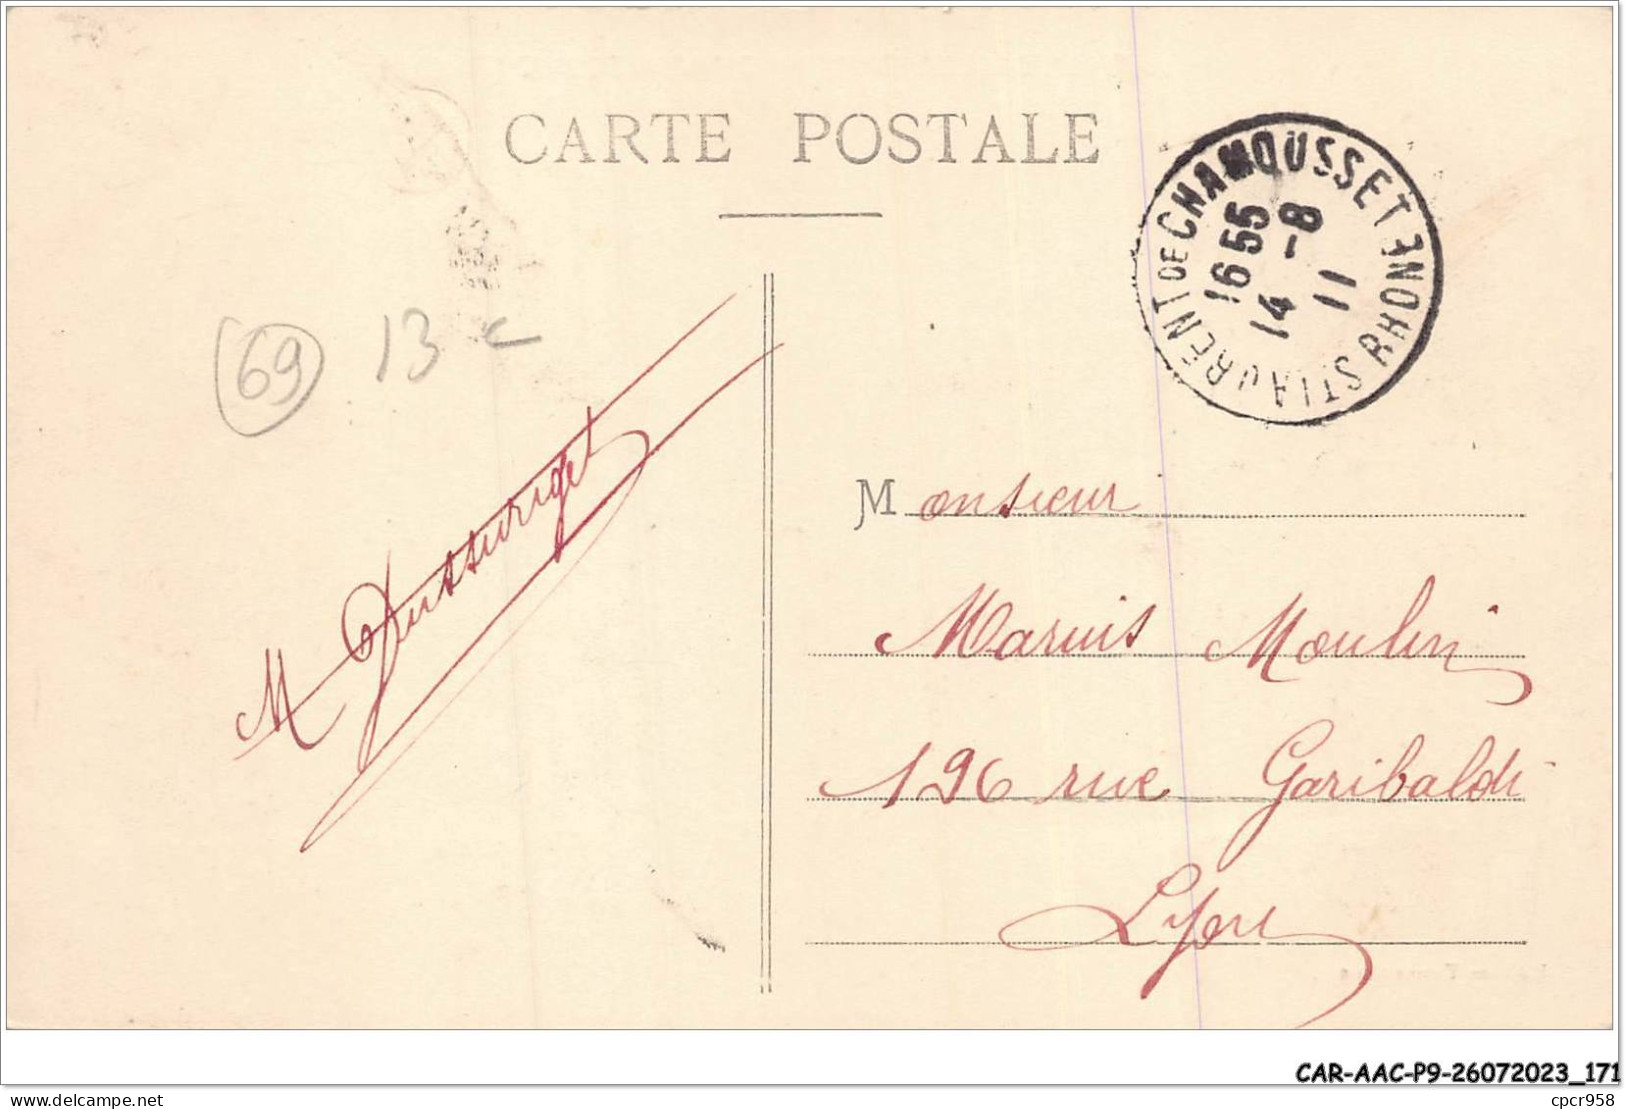 CARTE POSTALE
ST LAURENT DE CHAMOUSSET RHONE
16 55
14 - 8
11
69 13 c
M Dussurget
Monsieur
Marius Moulin
196 rue Garibaldi
Lyon
CAR-AAC-P9-26072023_171
cpcr958